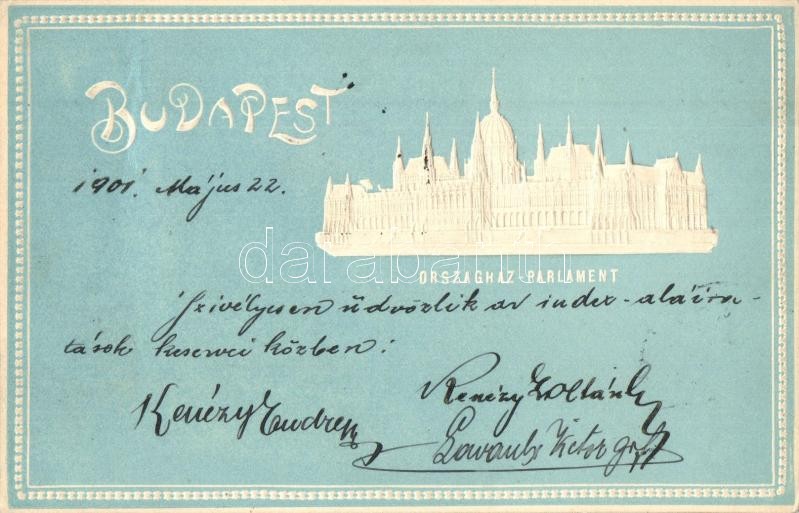 BUDAPEST
1901. Május 22.
ORSZAGHAZ-PARLAMENT
darabanth
Szivélyesen üdvözlik az index-aláira-
tások keservei közben:
Kenézy Endre
Kenézy Zoltán
Victor